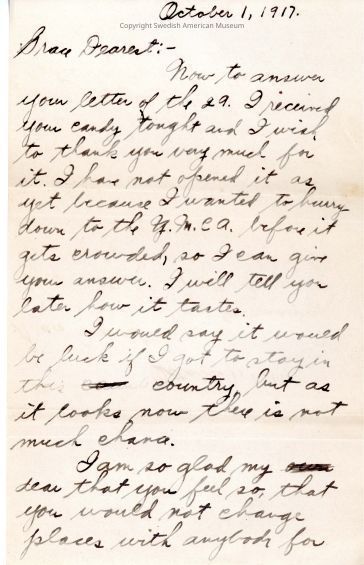 October 1, 1917.
Copyright Swedish American Museum
Grace Dearest:-
Now to answer
your letter of the 29. I received
your candy tonght and I wish
to thank you very much for
it. I have not opened it as
yet because I wanted to hurry
down to the Y.M.C.A. before it
gets crowded, so I can give
your answer. I will tell you
later how it tastes.
I would say it would
be luck if I got to stay in
this country, but as
it looks now there is not
much chance.
I am so glad my
dear that you feel so, that
you would not change
places with anybody for